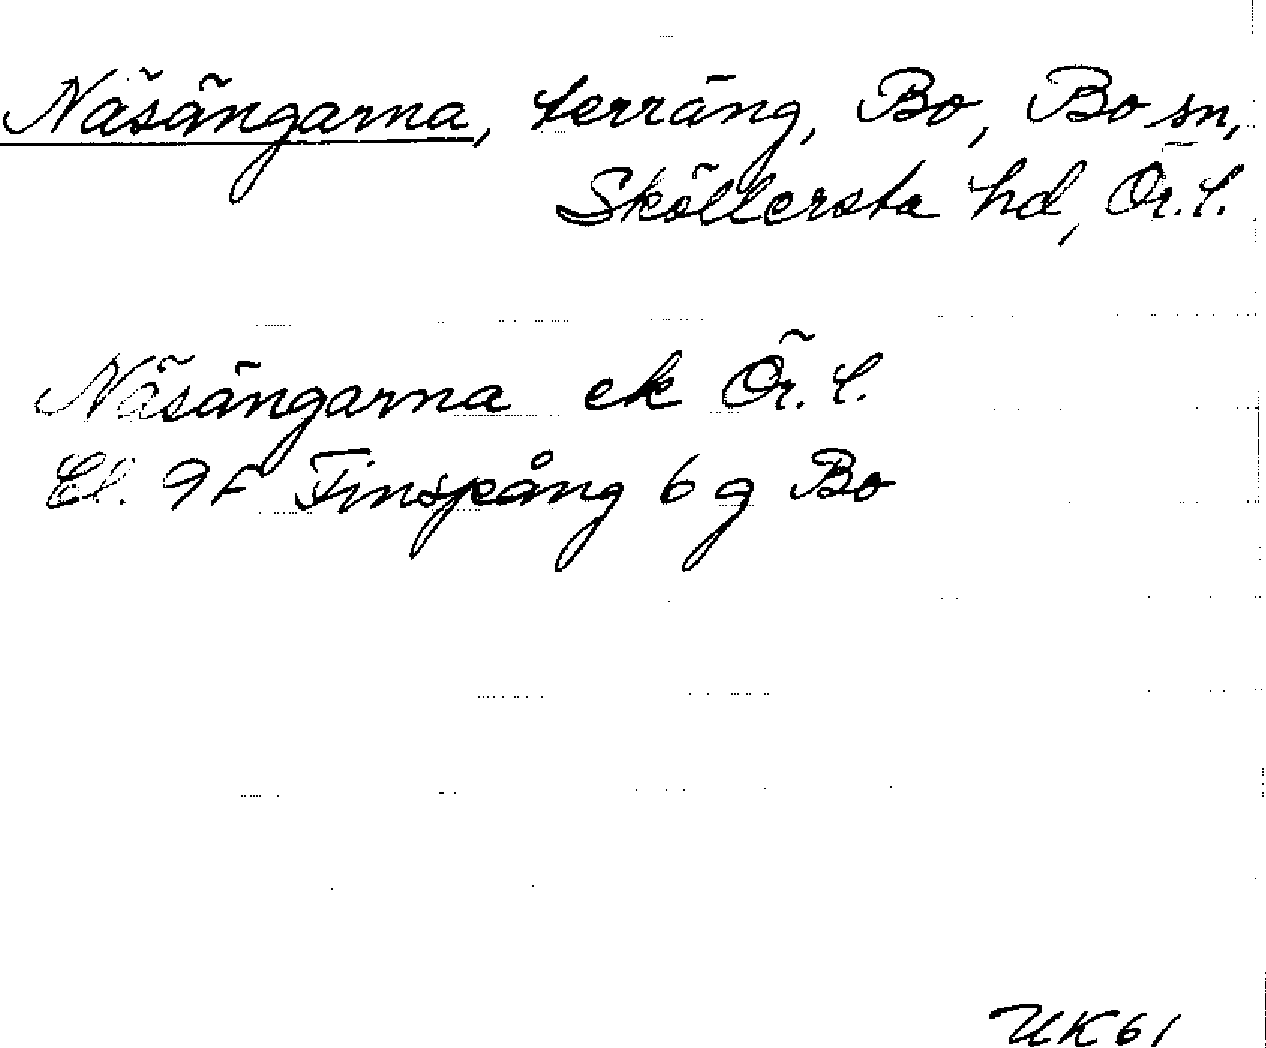 Näsängarna, terräng, Bo, Bo sn,
Sköllersta hd, Ör. l.
Näsängarna ek Ör. l.
Bl. 9F Finspång 6 g Bo
UK 61